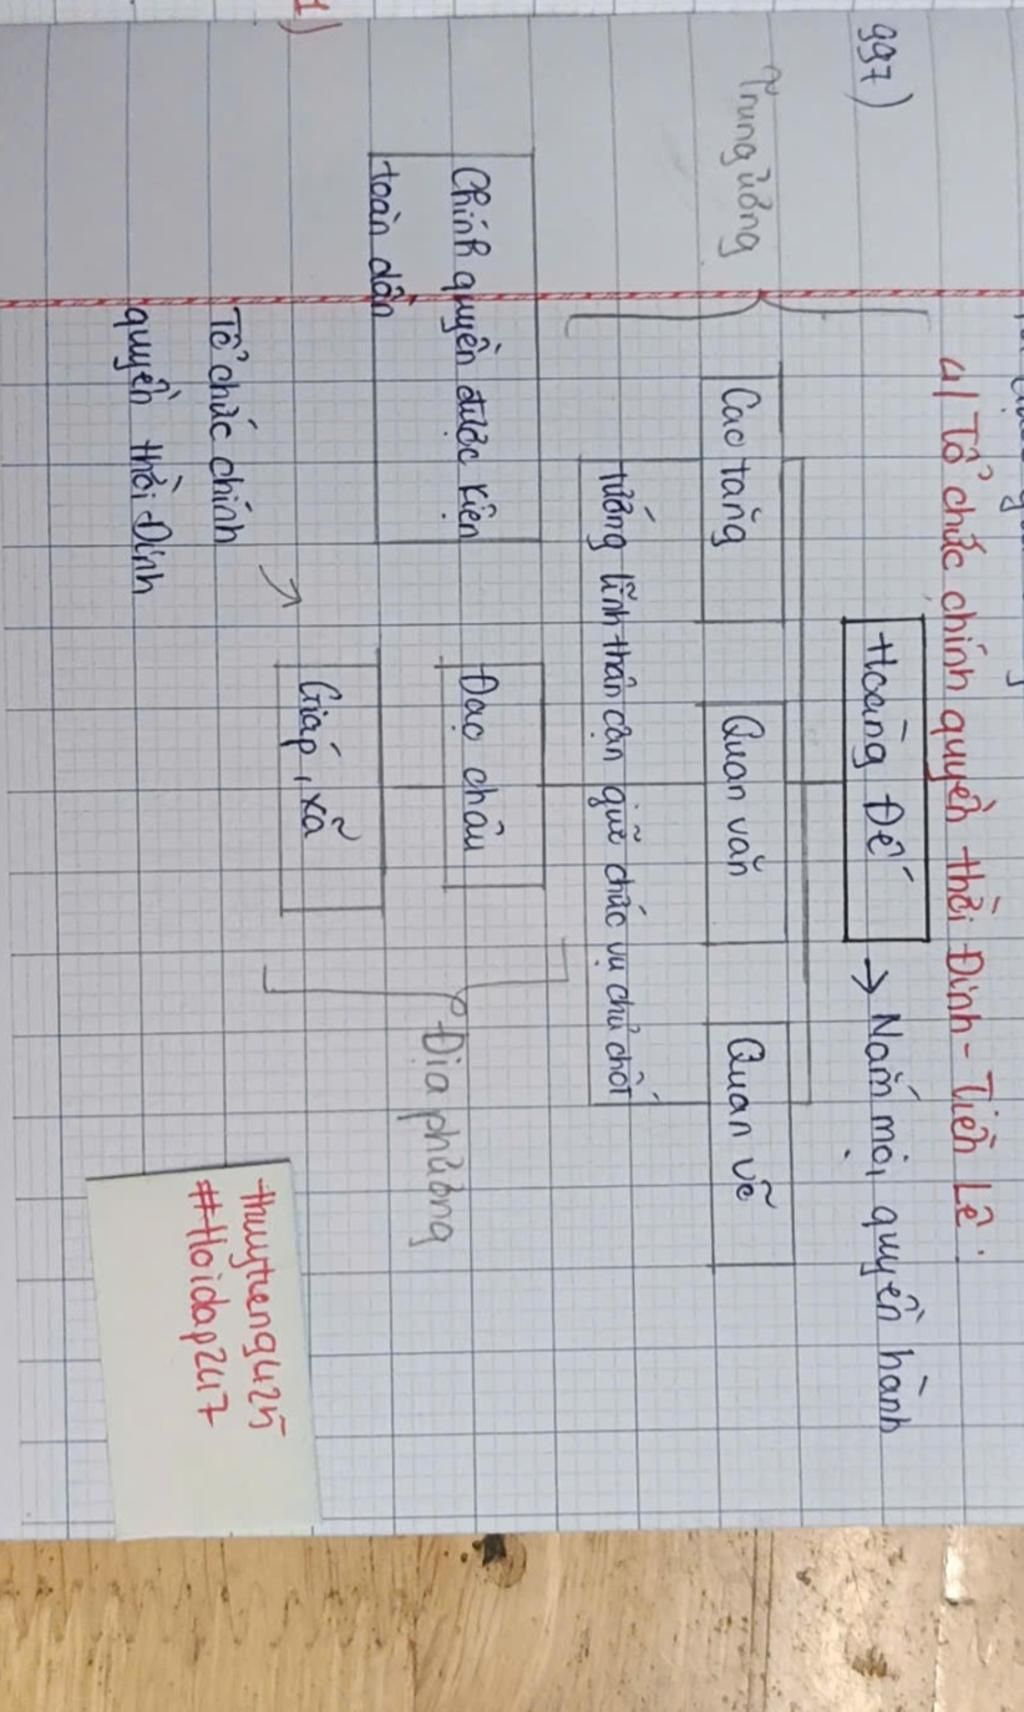 997)
4/ Tổ chức chính quyền thời Đinh - Tiền Lê.
Hoàng Đế → Nắm mọi quyền hành
Trung ương
Cao tăng
Quan văn
Quan võ
tướng lĩnh thân cận giữ chức vụ chủ chốt
Chính quyền được kiện
toàn dần
Đạo châu
Địa phương
Giáp, xã
1)
Tổ chức chính
quyền thời Đinh
thuytieng425
#Hoidap247